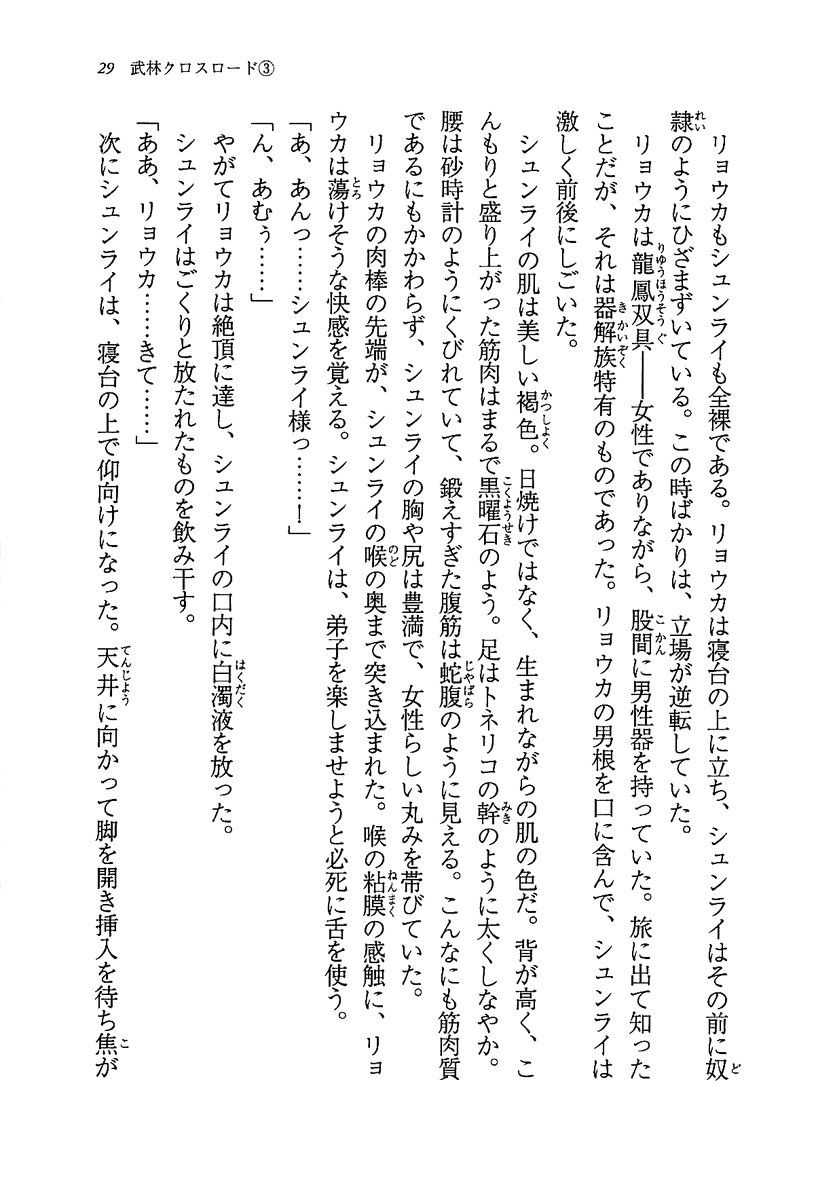 29 武林クロスロード③
リョウカもシュンライも全裸である。リョウカは寝台の上に立ち、シュンライはその前に奴
隷のようにひざまずいている。この時ばかりは、立場が逆転していた。
リョウカは龍鳳双具――女性でありながら、股間に男性器を持っていた。旅に出て知った
ことだが、それは器解族特有のものであった。リョウカの男根を口に含んで、シュンライは
激しく前後にしごいた。
シュンライの肌は美しい褐色。日焼けではなく、生まれながらの肌の色だ。背が高く、こ
んもりと盛り上がった筋肉はまるで黒曜石のよう。足はトネリコの幹のように太くしなやか。
腰は砂時計のようにくびれていて、鍛えすぎた腹筋は蛇腹のように見える。こんなにも筋肉質
であるにもかかわらず、シュンライの胸や尻は豊満で、女性らしい丸みを帯びていた。
リョウカの肉棒の先端が、シュンライの喉の奥まで突き込まれた。喉の粘膜の感触に、リョ
ウカは蕩けそうな快感を覚える。シュンライは、弟子を楽しませようと必死に舌を使う。
「あ、あんっ……シュンライ様っ……！」
「ん、あむぅ……」
やがてリョウカは絶頂に達し、シュンライの口内に白濁液を放った。
シュンライはごくりと放たれたものを飲み干す。
「ああ、リョウカ……きて……」
次にシュンライは、寝台の上で仰向けになった。天井に向かって脚を開き挿入を待ち焦が